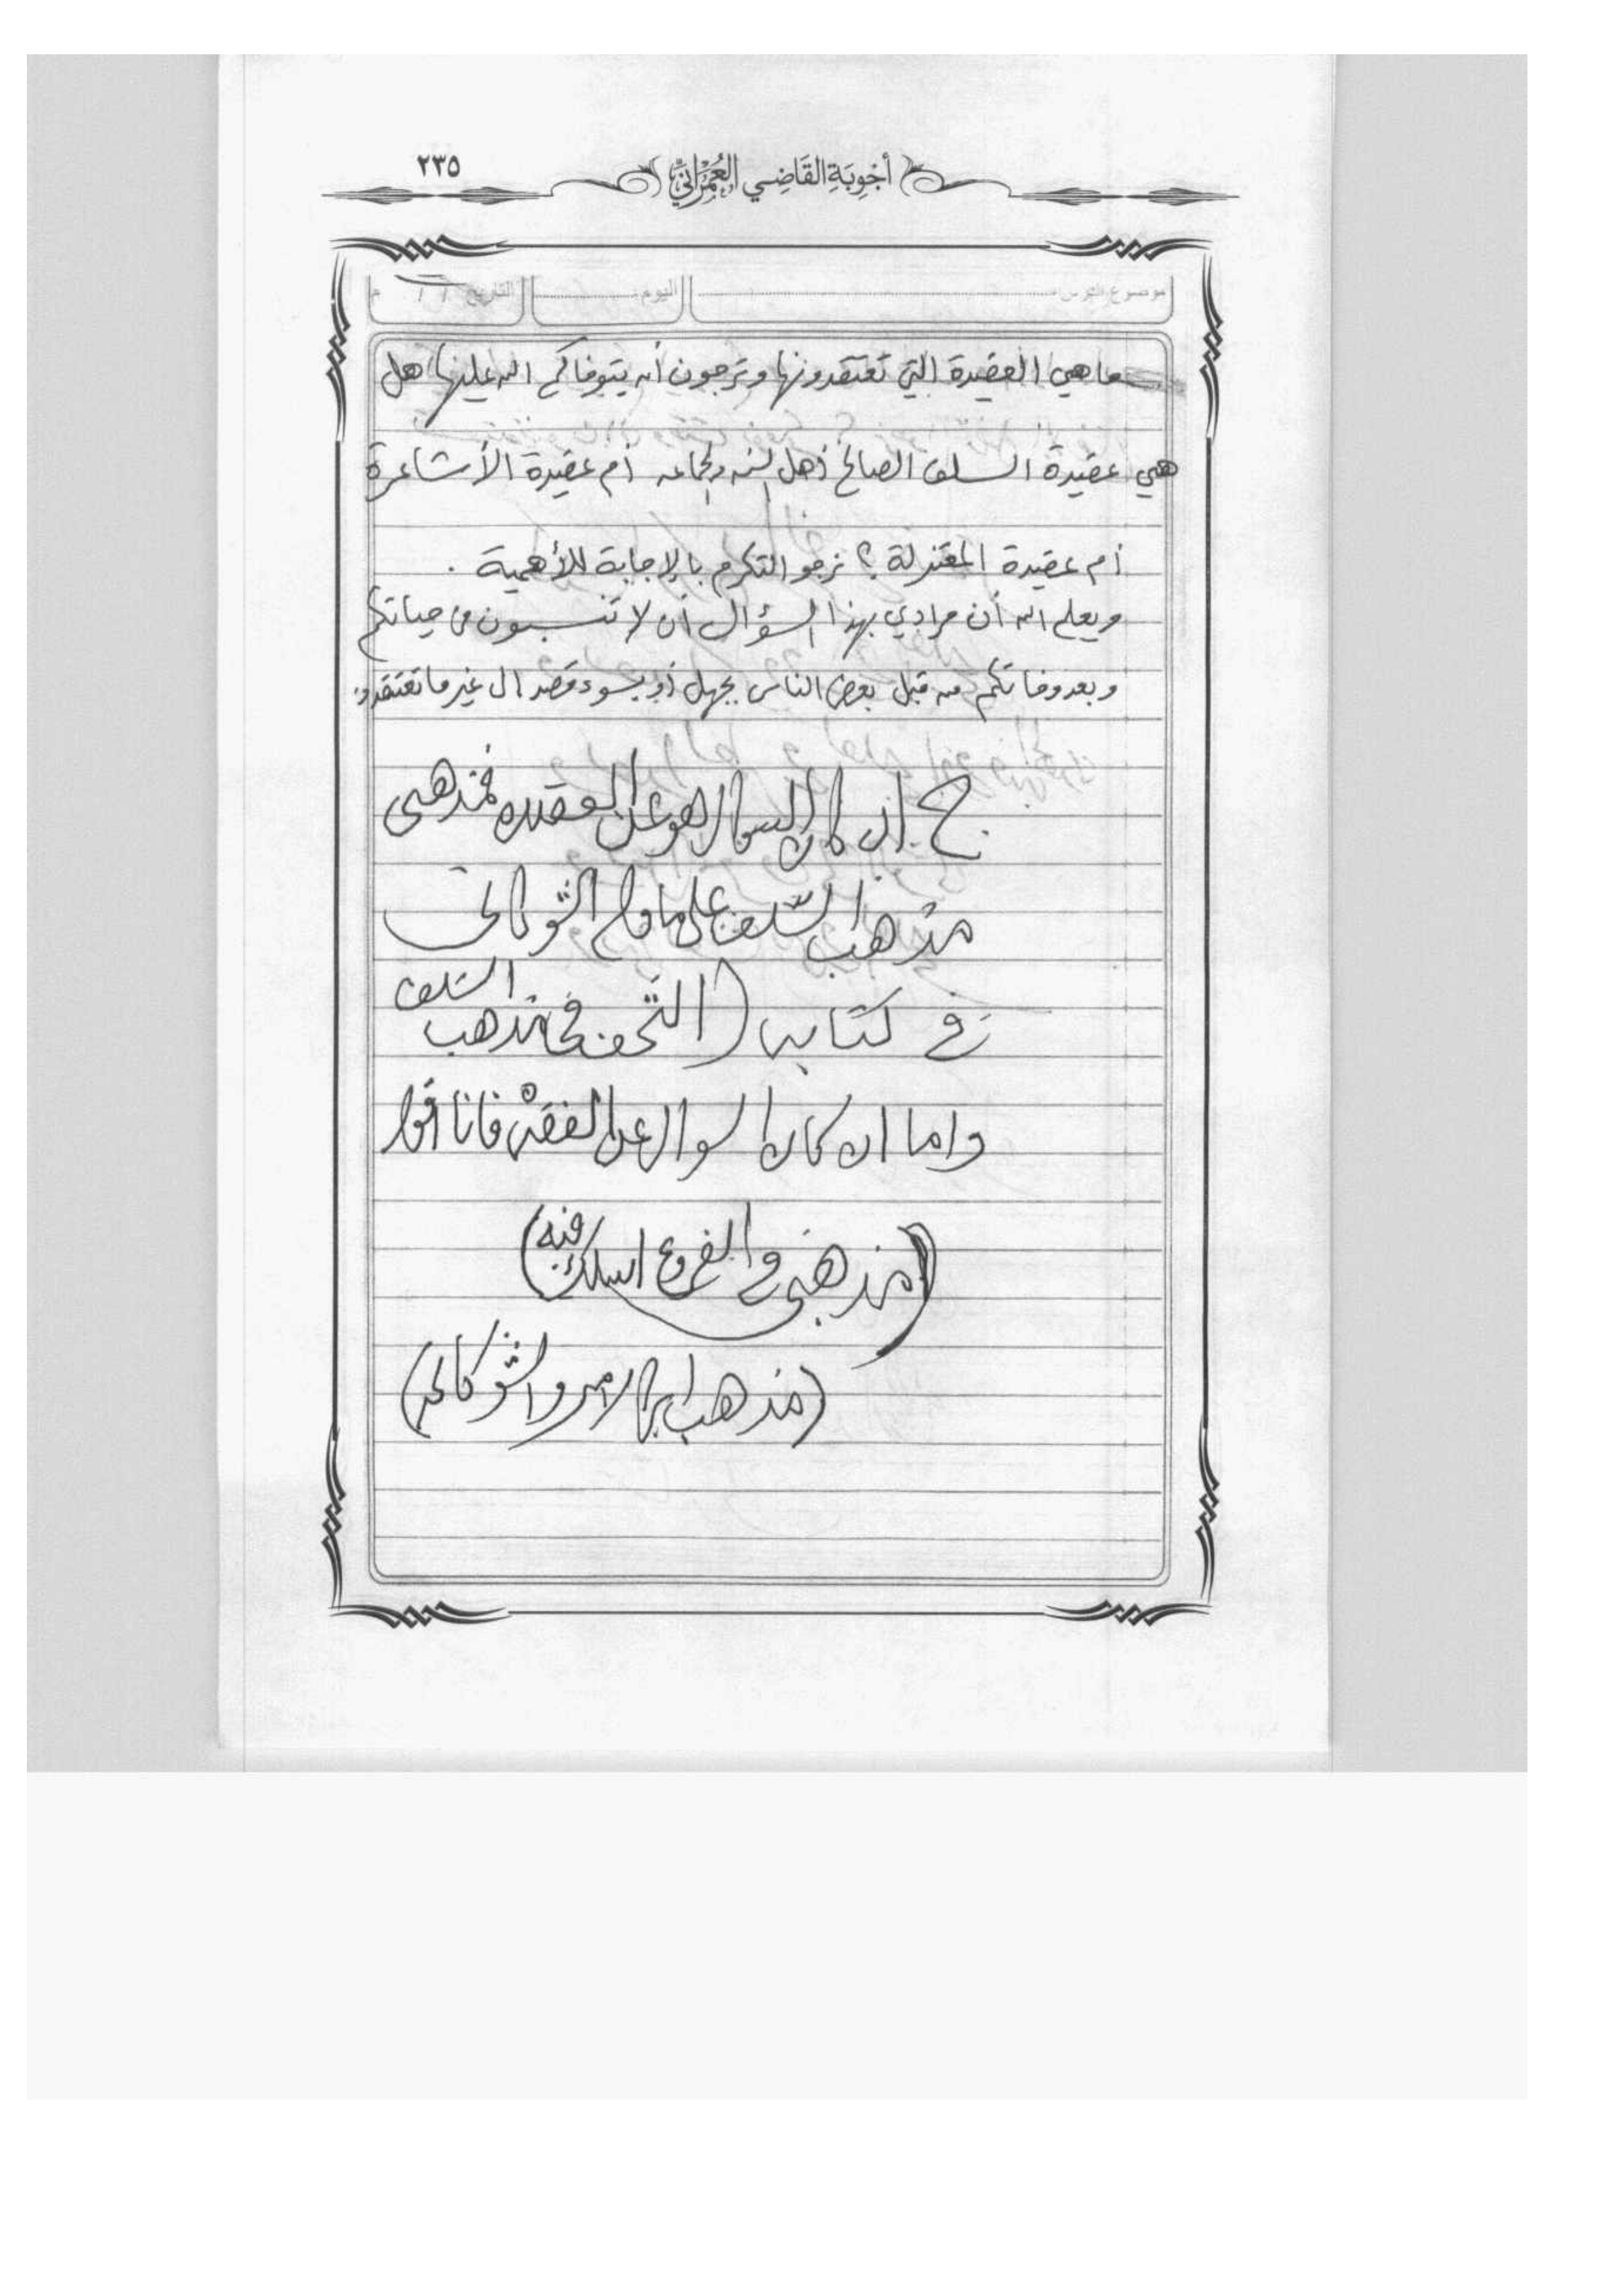 أَجْوِبَةِ القَاضِي العُمْرَانِيِّ
٢٣٥
موضوع الدرس: اليوم: التاريخ / / م
ما هي العقيدة التي تعتقدونها وترجون أن يتوفاكم الله عليها هل
هي عقيدة السلف الصالح أهل السنه والجماعه أم عقيدة الأشاعرة
أم عقيدة المعتزلة؟ نرجو التكرم بالإجابة للأهمية.
ويعلم الله أن مرادي بهذا السؤال أن لا تنسبون في حياتكم
وبعد وفاتكم من قبل بعض الناس بجهل أو بسوء قصد الى غير ما تعتقدون
ج. ان كان السوال هو عن العقيده فمذهبي
مذهب السلف على ما قاله الشوكاني
في كتابه (التحف في مذهب السلف
واما ان كان السوال عن الفقه فانا اقول
(مذهبي في الفروع اسلك فيه)
(مذهب ابن الامير والشوكاني)